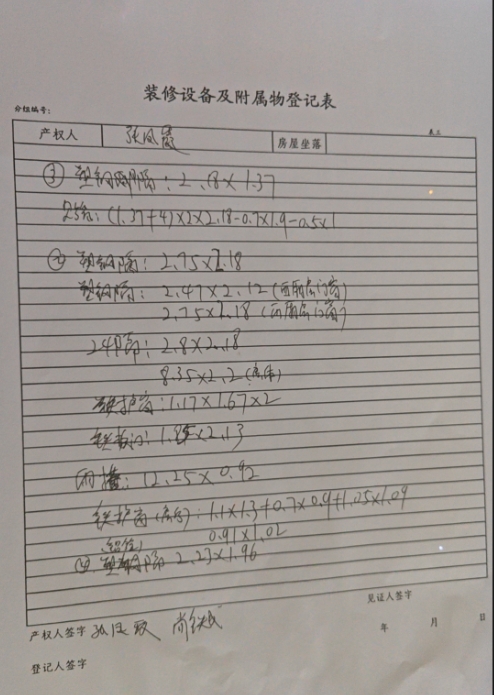 装修设备及附属物登记表
分组编号：
表三
产权人 张凤霞 房屋坐落
③ 塑钢隔隔：2.18×1.37
：(1.37+4)×2×2.18-0.7×1.9-0.5×1
② 塑钢隔：2.75×2.18
塑钢隔：2.47×2.12(西厢房门窗)
2.75×2.18(西厢房门窗)
24隔：2.8×2.18
8.35×2.2
铁护窗：1.17×1.67×2
铁门：1.85×2.13
雨搭：12.25×0.92
铁护窗：1.1×1.3+0.7×0.9+1.05×1.09
0.91×1.02
④ 塑钢隔 2.23×1.96
见证人签字
产权人签字
年 月 日
登记人签字